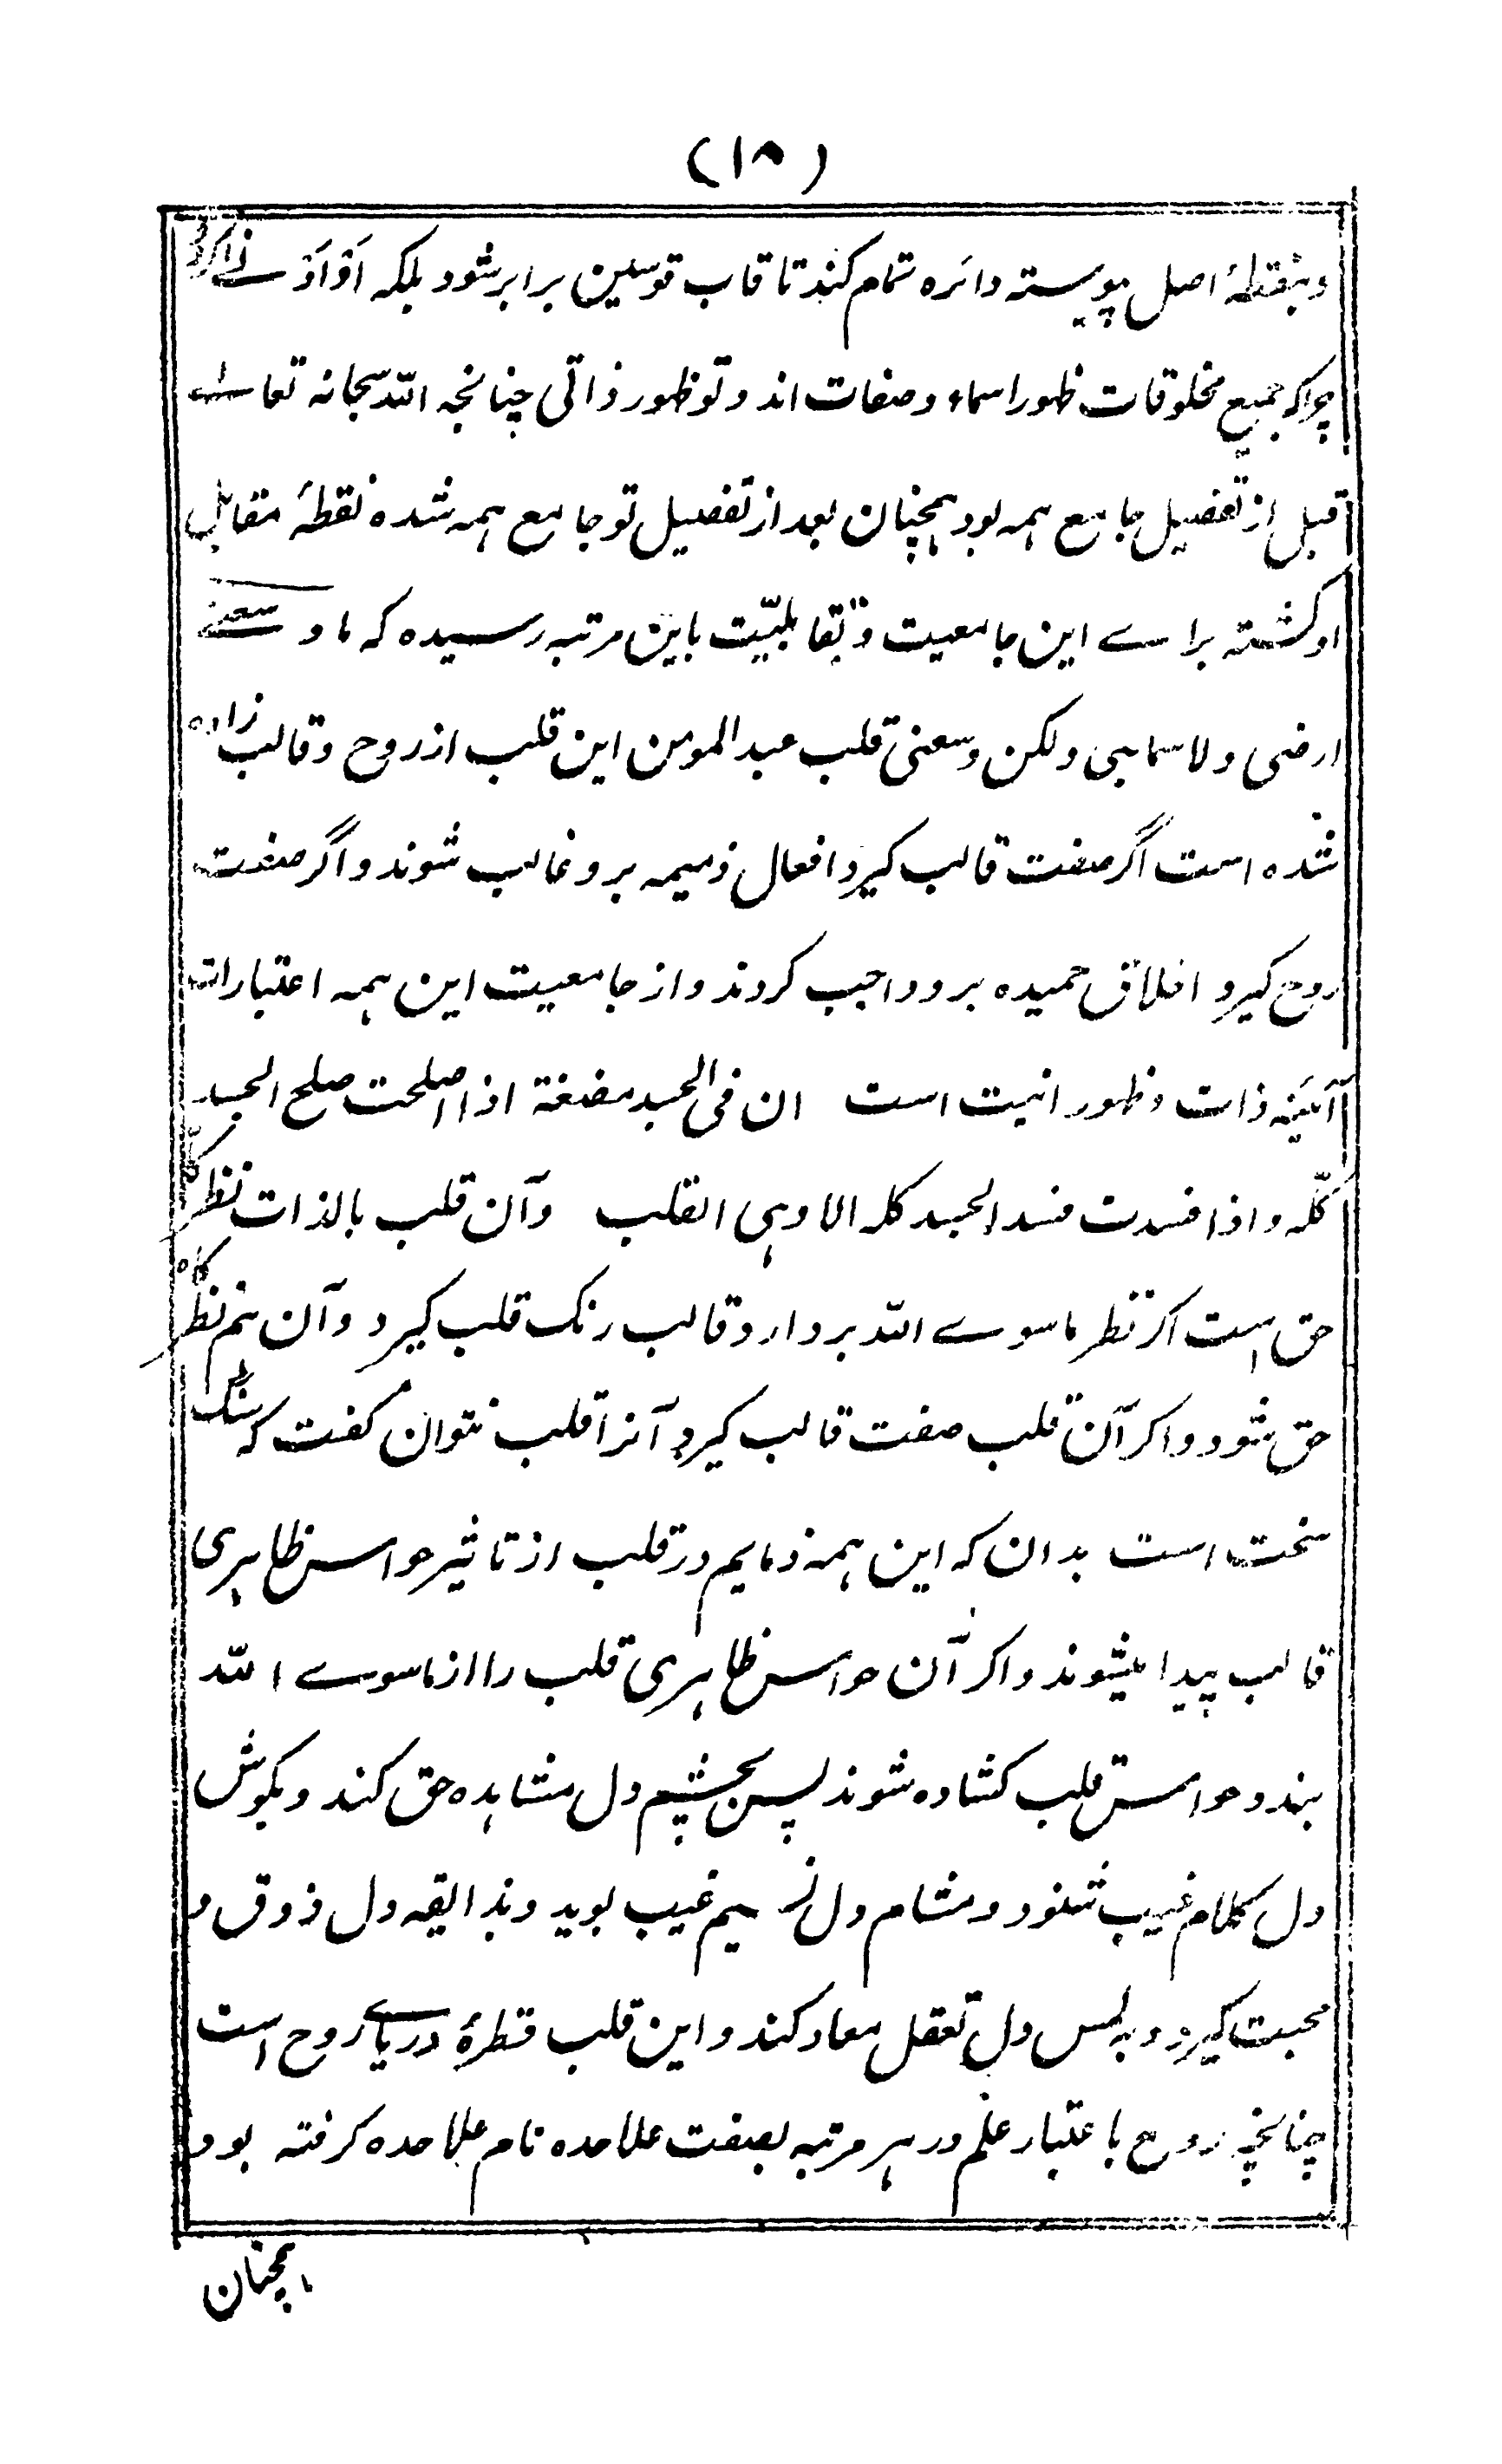 (۱۸)
و بنقطهٔ اصل پیوسته دائره تمام کند تا قاب قوسین برابر شود بلکه اَوْ اَدْنے گردد
چراکه جمیع مخلوقات ظهور اسماء و صفات اند و تو ظهور ذاتی چنانچه الله سبحانه تعالے
قبل از تفصیل جامع همه بود همچنان بعد از تفصیل تو جامع همه شده نقطهٔ مقابل
او گشته براے این جامعیت و تقابلیّت باین مرتبه رسیده که ما وسعنے
ارضی ولا سمایی ولکن وسعنی قلب عبد المومن این قلب از روح و قالب زاده
شده است اگر صفت قالب گیرد افعال ذمیمه برو غالب شوند و اگر صفت
روح گیرد اخلاق حمیده برو واجب گردند و از جامعیت این همه اعتبارات
آئینه ذات و ظهور انیت است ان فی الجسد مضغة اذا اصلحت صلح الجسد
کلّه و اذا فسدت فسد الجسد کله الا وهی القلب وآن قلب بالذات نظرگاه
حق است اگر نظر ماسوے الله بردارد قالب رنگ قلب گیرد و آن هم نظرگاه
حق شود و اگر آن قلب صفت قالب گیرد آنرا قلب نتوان گفت که سنگ
سخت است بدان که این همه ذمایم در قلب از تاثیر حواس ظاهری
قالب پیدا میشوند و اگر آن حواس ظاهری قلب را از ماسوے الله
بندد حواس قلب کشاده شوند پس بچشم دل مشاهده حق کند و بگوش
دل کلام غیب شنود و مشام دل نسیم غیب بوید و بذایقه دل ذوق و
محبت گیرد و به لمس دل تعقل معاد کند و این قلب قطرهٔ دریاے روح است
چنانچه روح باعتبار علم در هر مرتبه بصفت علاحده نام علاحده گرفته بود
همچنان